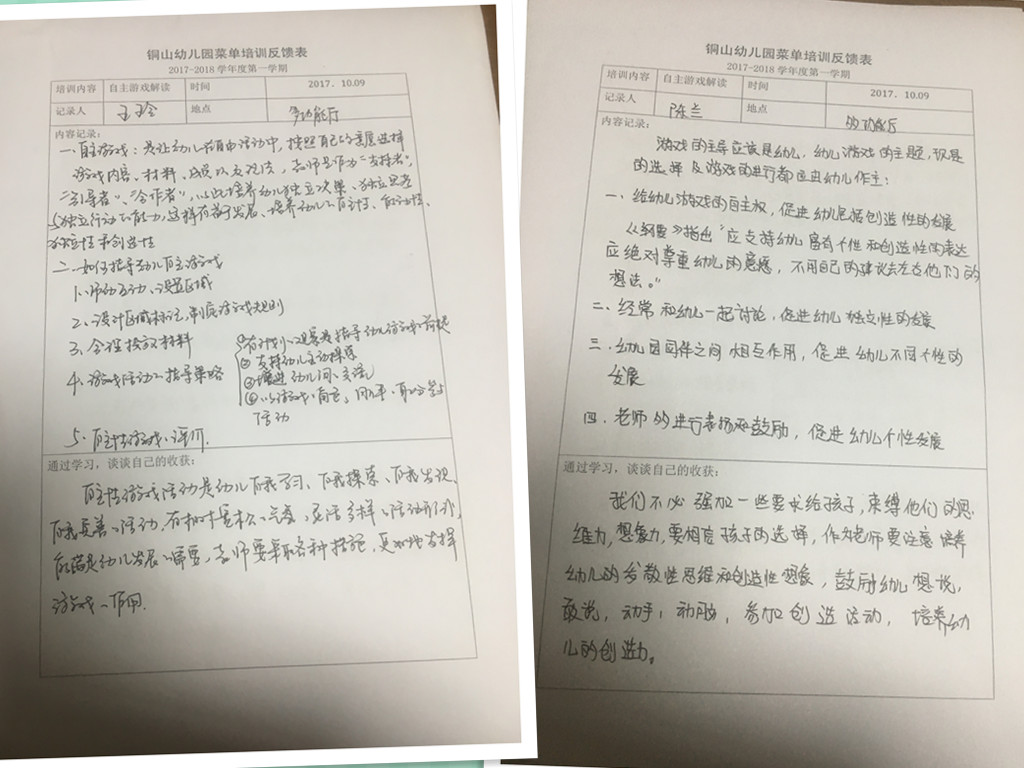 铜山幼儿园菜单培训反馈表
2017-2018 学年度第一学期
培训内容 自主游戏解读 时间 2017. 10.09
记录人 王玲 地点 多功能厅
内容记录：
一.自主游戏：是让幼儿在自由活动中，按照自己的意愿选择
游戏内容、材料、成员以及玩法，老师是作为“支持者”、
“引导者”、“合作者”，以此培养幼儿独立决策、独立思考
独立行动的能力，这样有益于发展、培养幼儿的自主性、
独立性和创造性
二.如何指导幼儿自主游戏
1.师幼互动、设置区域
2.设计区域标记，制定游戏规则
3.合理投放材料
4.游戏活动的指导策略
①有计划的观察是指导幼儿游戏的前提
②支持幼儿主动探索
③增进幼儿间的交流
④以游戏的角色、同伴、身份参与
活动
5.自主性游戏的评价.
通过学习，谈谈自己的收获：
自主性游戏活动是幼儿自我学习、自我探索、自我发现、
自我完善的活动，有相对宽松的气氛，灵活多样的活动形式，
能满足幼儿发展的需要，老师要采取各种措施，更好地发挥
游戏的作用.
铜山幼儿园菜单培训反馈表
2017-2018 学年度第一学期
培训内容 自主游戏解读 时间 2017. 10.09
记录人 陈兰 地点 多功能厅
内容记录：
游戏的主导应该是幼儿，幼儿游戏的主题，玩具
的选择及游戏的进行都应由幼儿作主：
一、给幼儿游戏的自主权，促进幼儿创造性的发展
《纲要》指出“应支持幼儿富有个性和创造性的表达
应绝对尊重幼儿的意愿，不用自己的建议去左右他们的
想法。”
二、经常和幼儿一起讨论，促进幼儿独立性的发展
三.幼儿同伴之间相互作用，促进幼儿不同个性的
发展
四.老师的进行表扬和鼓励，促进幼儿个性发展
通过学习，谈谈自己的收获：
我们不必强加一些要求给孩子，束缚他们的思
维力，想象力，要相信孩子的选择，作为老师要注意培养
幼儿的发散性思维和创造性想象，鼓励幼儿想说，
敢说，动手，动脑，参加创造活动，培养幼
儿的创造力。